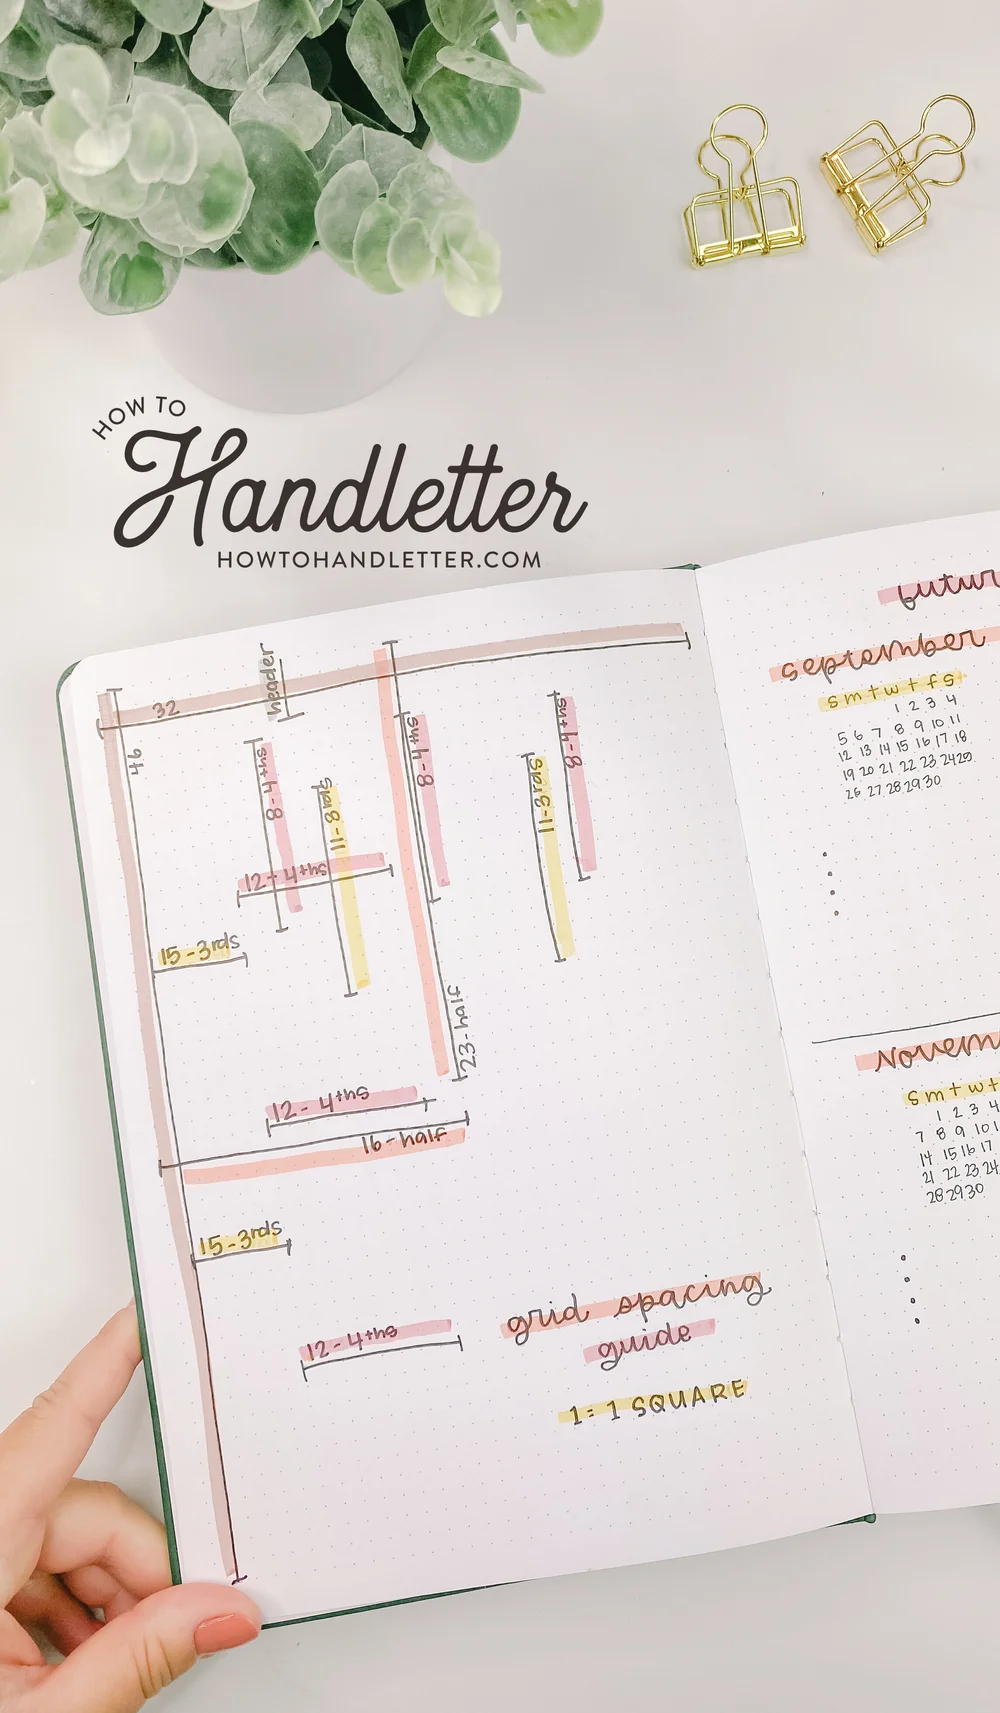 HOW TO
Handletter
HOWTOHANDLETTER.COM
32
header
46
8-4ths
11-8rds
8-4ths
11-3rds
8-4ths
12-4ths
15-3rds
23-half
12-4ths
16-half
15-3rds
12-4ths
grid spacing
guide
1 = 1 SQUARE
september
s m t w t f s
1 2 3 4
5 6 7 8 9 10 11
12 13 14 15 16 17 18
19 20 21 22 23 24 25
26 27 28 29 30
s m t w t
1 2 3 4
7 8 9 10 1
14 15 16 17
21 22 23 24
28 29 30